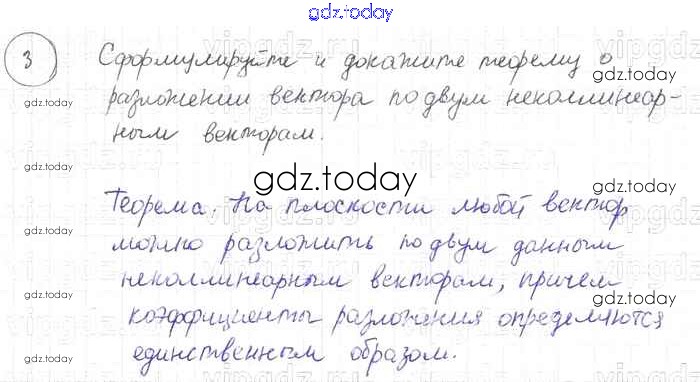 gdz.today
3 Сформулируйте и докажите теорему о
gdz.today
разложении вектора по двум неколлинеар-
ным векторам.
gdz.today
gdz.today
Теорема. На плоскости любой вектор
можно разложить по двум данным
неколлинеарным векторам, причем
коэффициенты разложения определяются
единственным образом.